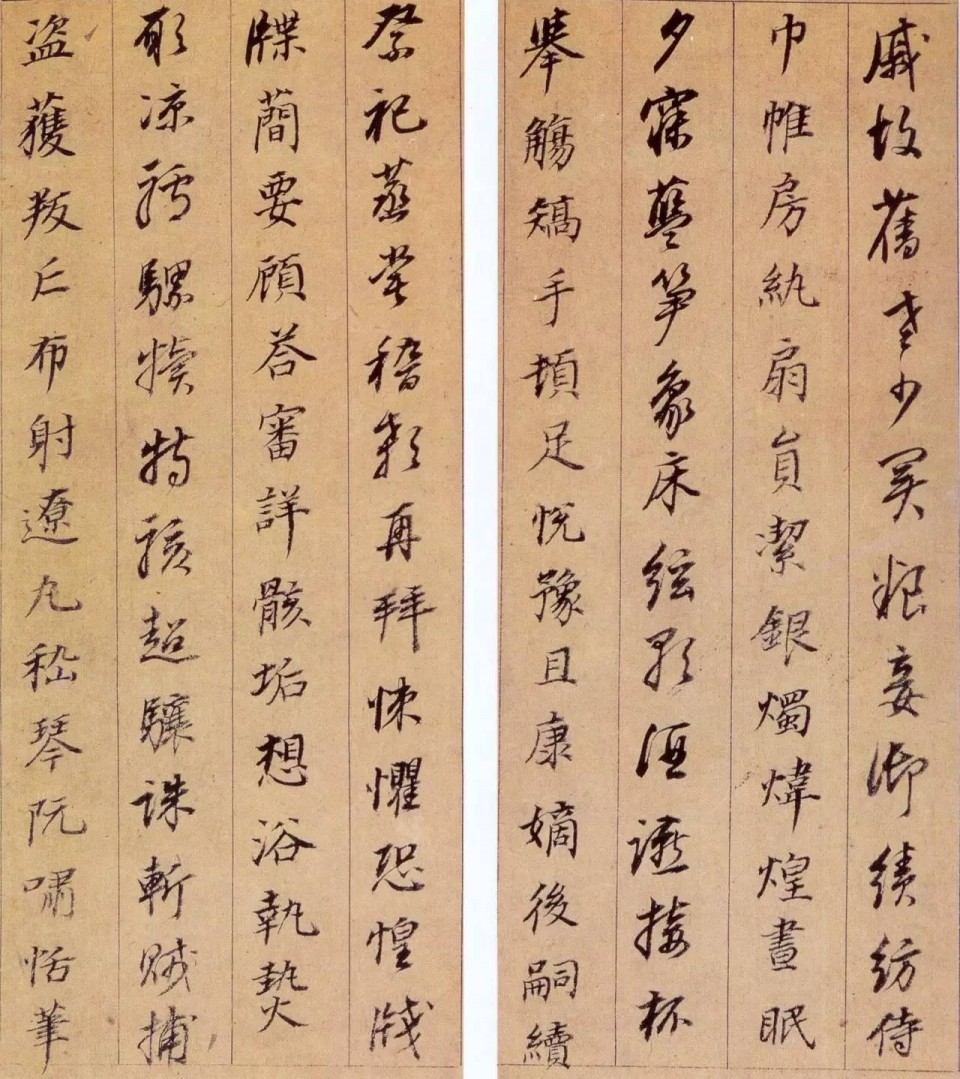 戚故舊老少異粮妾御績紡侍
巾帷房紈扇員潔銀燭煒煌晝眠
夕寐藍笋象床絃歌酒讌接杯
舉觴矯手頓足悅豫且康嫡後嗣續
祭祀蒸嘗稽顙再拜悚懼恐惶牋
牒蕳要顧荅審詳骸垢想浴執熱
願凉驢騾犢特駭超驤誅斬賊捕
盗獲叛亡布射遼丸嵇琴阮嘯恬筆